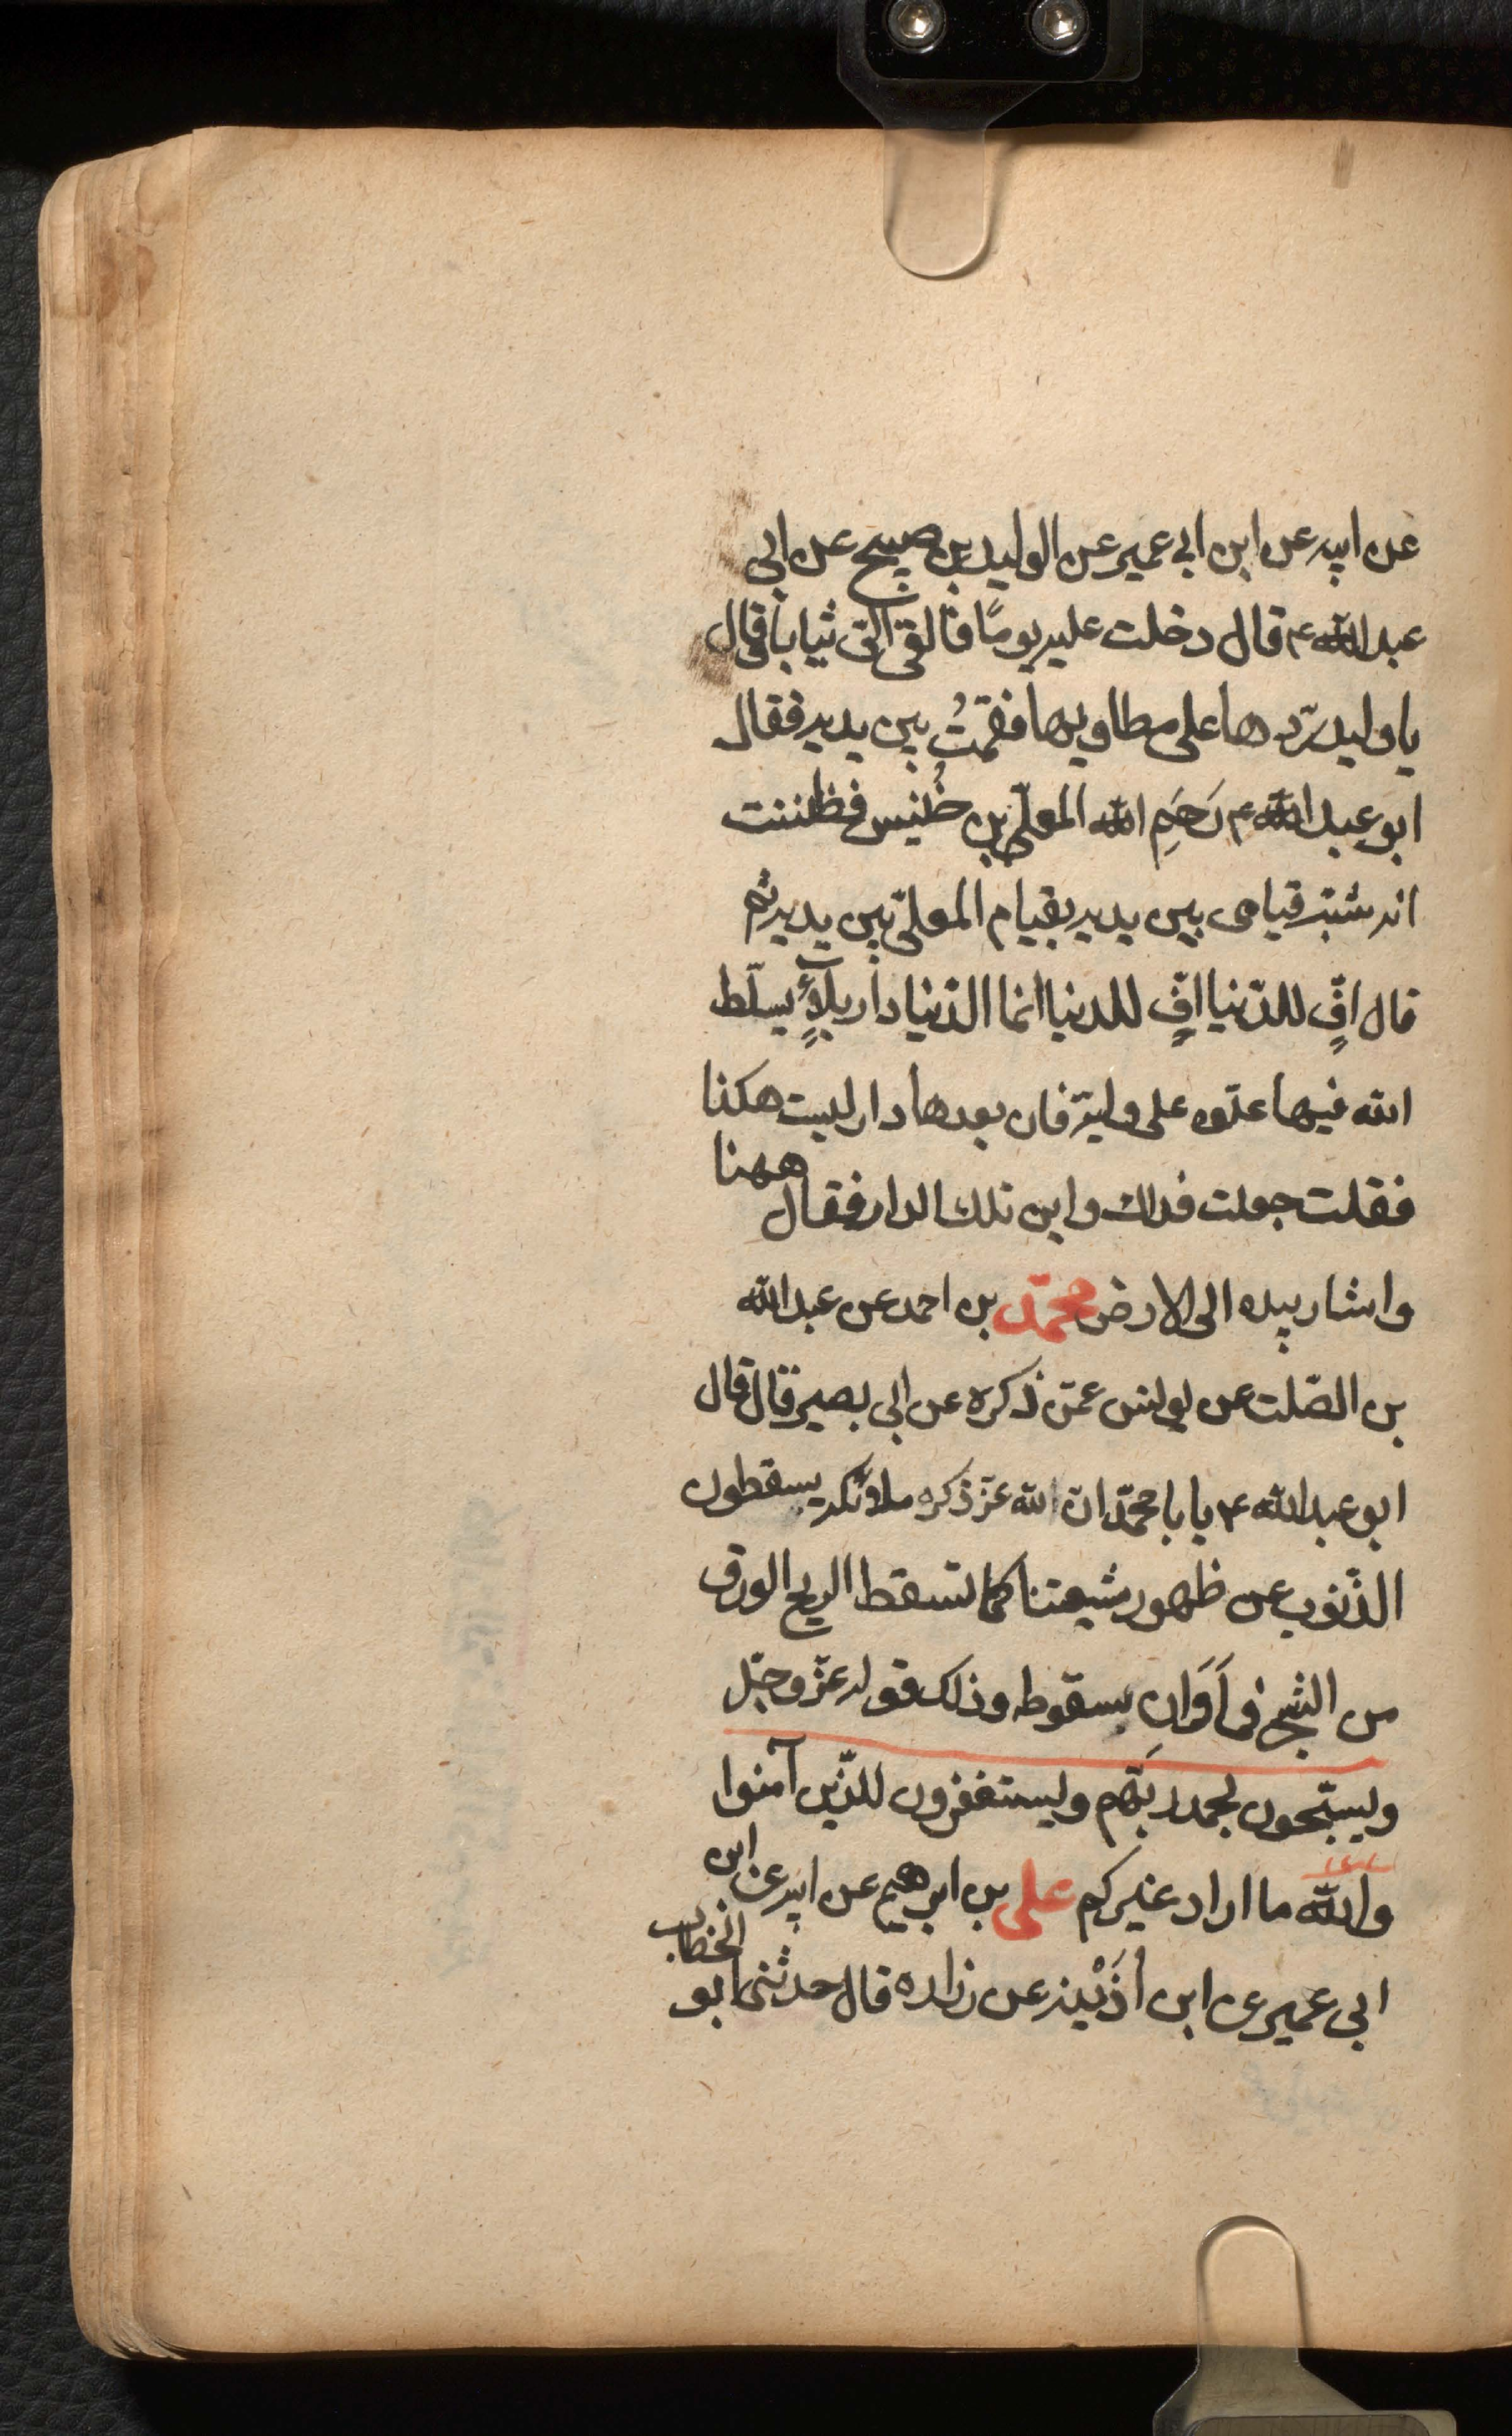 عن ابيه عن ابن ابى عمير عن الوليد بن صبيح عن ابى
عبد الله ع قال دخلت عليه يومًا فالقى الىّ ثيابا فقال
يا وليد ردّها على مطاويها فقمتُ بين يديه فقال
ابو عبد الله ع رَحِمَ الله المعلّى بن خُنيس فظننت
انه شبّه قيامى بين يديه بقيام المعلّى بين يديه ثم
قال افٍّ للدّنيا افٍّ للدنيا انما الدّنيا دار بلآءٍ يسلّط
الله فيها عدّوه على وليّه فان بعدها دار ليست هكذا
فقلت جعلت فداك واين تلك الدار فقال ههنا
واشار بيده الى الارض محمّد بن احمد عن عبد الله
بن الصّلت عن يونس عمّن ذكره عن ابى بصير قال قال
ابو عبد الله ع يا با محمّد انّ الله عزّ ذكره ملائكه يسقطون
الذّنوب عن ظهور شيعتنا كما تسقط الريح الورق
من الشجر فى اَوَانِ سقوطه وذلك قوله عزّ وجلّ
ويسبّحون بحمد ربّهم ويستغفرون للذّين آمنوا
والله ما اراد غيركم على بن ابرهيم عن ابيه عن ابن
ابى عمير عن ابن اُذَيْنه عن زراره قال حدثنى ابو الخطاب